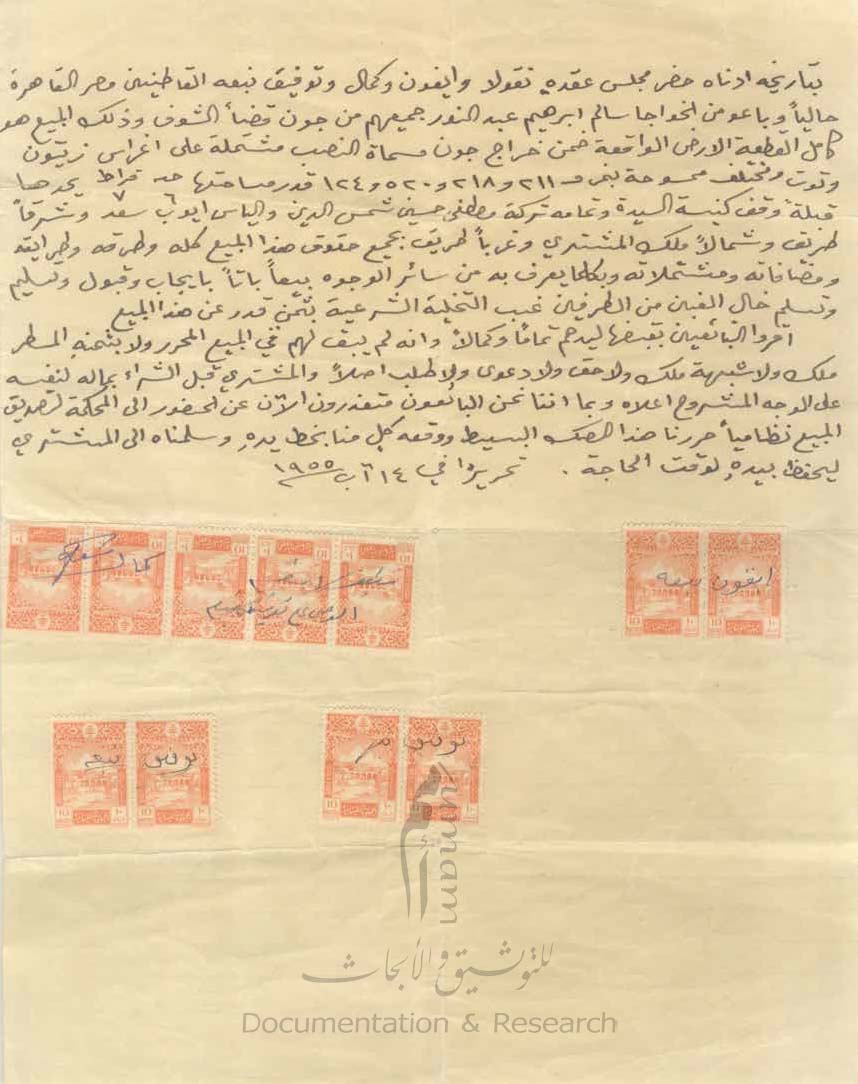 بتاريخه ادناه حضر مجلس عقده نقولا وايفون وكمال وتوفيق نبعه القاطنين مصر القاهرة
حالياً وباعو من الخواجا سالم ابرهيم عبد النور جميعهم من جون قضأ الشوف وذلك المبيع هو
كامل القطعة الارض الواقعة ضمن خراج جون مسماة النصب مشتملة على اغراس زيتون
وتوت ومختلف ممسوحة بنمر ٢١١ و٢١٨ و٥٢٠ و١٢٤ قدر مساحتها قراط يحدها
قبلة وقف كنيسة السيدة وتمامه تركة مصطفى حسين شمس الدين والياس ايوب سعد وشرقاً
طريق وشمالاً ملك المشتري وغرباً طريق بجميع حقوق هذا المبيع كله وطرقه وطرايقه
ومضافاته ومشتملاته وبكلما يعرف به من سائر الوجوه بيعاً باتاً بايجاب وقبول وتسليم
وتسلم خال الغبن من الطرفين غب التخلية الشرعية بثمن قدر عن هذا المبيع
اقروا البائعين بقبضها ليدهم تماماً وكمالاً وانه لم يبق لهم في المبيع المحرر ولا بثمنه المسطر
ملك ولا شبهة ملك ولا حق ولا دعوى ولا طلب اصلاً والمشتري قبل الشراء بماله لنفسه
على الوجه المشروح اعلاه وبما اننا نحن البائعون متعذرون الآن عن الحضور الى المحكمة لتصديق
المبيع نظامياً حررنا هذا الصك البسيط ووقعه كل منا بخط يده وسلمناه الى المشتري
ليحفظ بيده لوقت الحاجة . تحريرا في ١٤ آب ١٩٥٥
ايفون نبعه
كمال
توفيق نبعه
توفيق
10
١٠
Ummam
للتوثيق والأبحاث
Documentation & Research